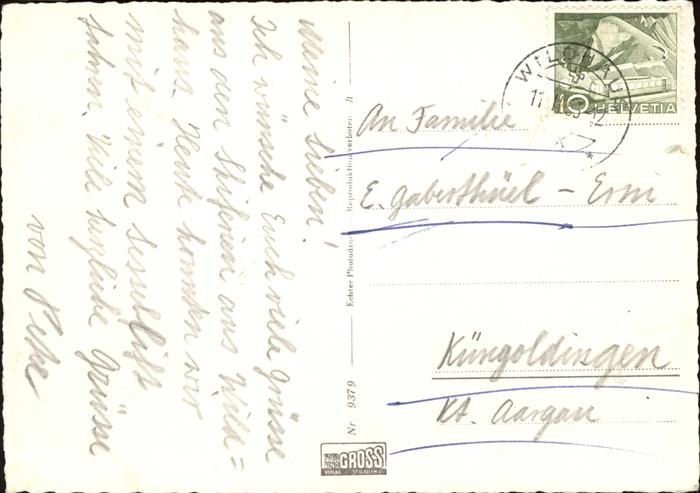 Meine Lieben!
Ich wünsche Euch viele Grüsse
aus den Skiferien aus Wild=
haus. Heute konnten wir
mit einem Sessellift
fahren. Viele herzliche Grüsse
von Peter
Nr. 9379
Echter Photodruck
Reproduktion verboten
GROSS
VERLAG
ST. GALLEN
WILDHAUS
10
HELVETIA
An Familie
E. Gaberthüel - Erni
Küngoldingen
Kt. Aargau